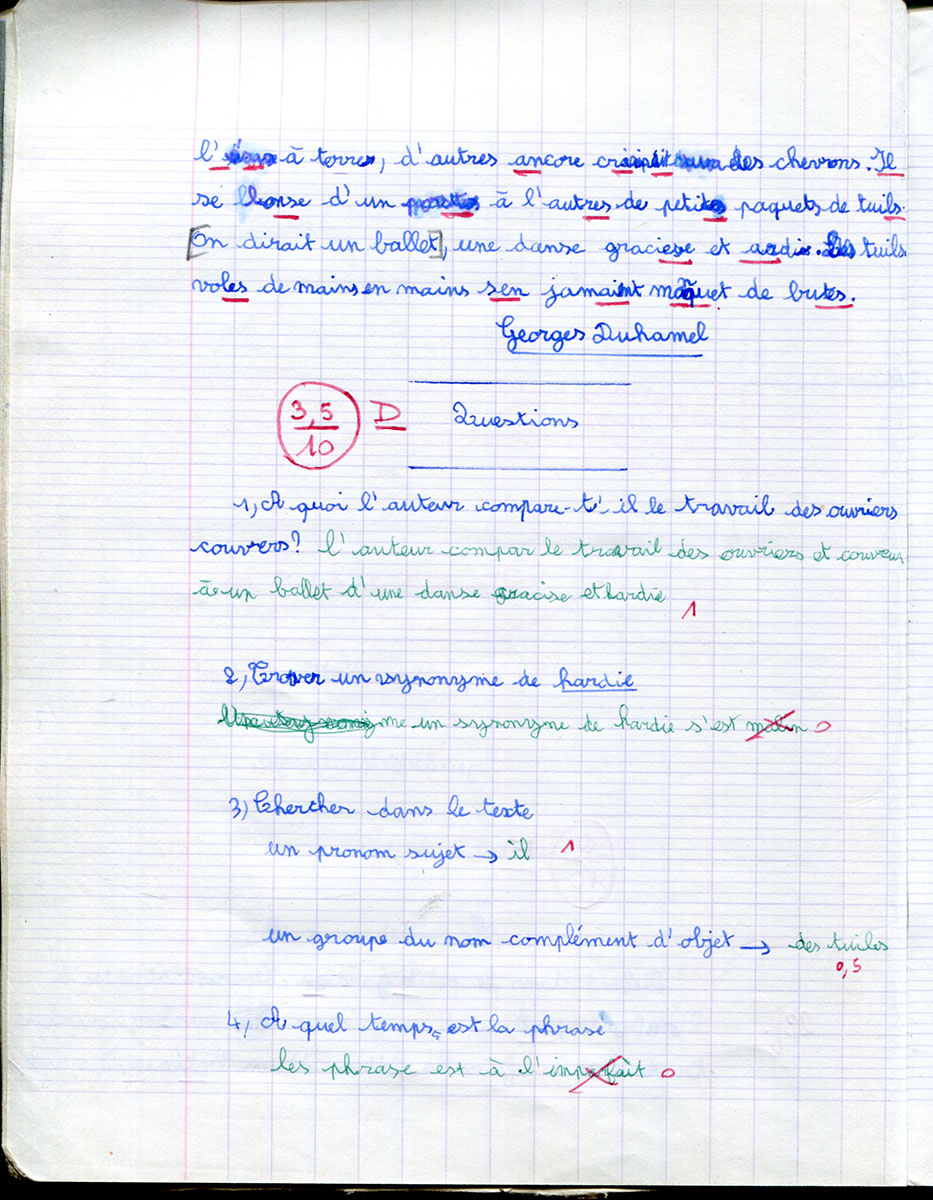 l' à terre, d'autres ancore des chevrons. Il
se lance d'un à l'autres de petits paquets de tuils.
[On dirait un ballet], une danse graciese et ardie. Les tuils
voles de mains en mains sen jamaint maquet de butes.
Georges Duhamel
3,5
10
D
Questions
1, A quoi l'auteur compare-t'il le travail des ouvriers
couvers? l'auteur compar le travail des ouvriers et couveur
à un ballet d'une danse gracise et hardie 1
2, Trover un synonyme de hardie
me un synonyme de hardie s'est malin 0
3) Chercher dans le texte
un pronom sujet → il 1
un groupe du nom complément d'objet → des tuiles
0,5
4, A quel temps est la phrase
les phrase est à l'imparfait 0